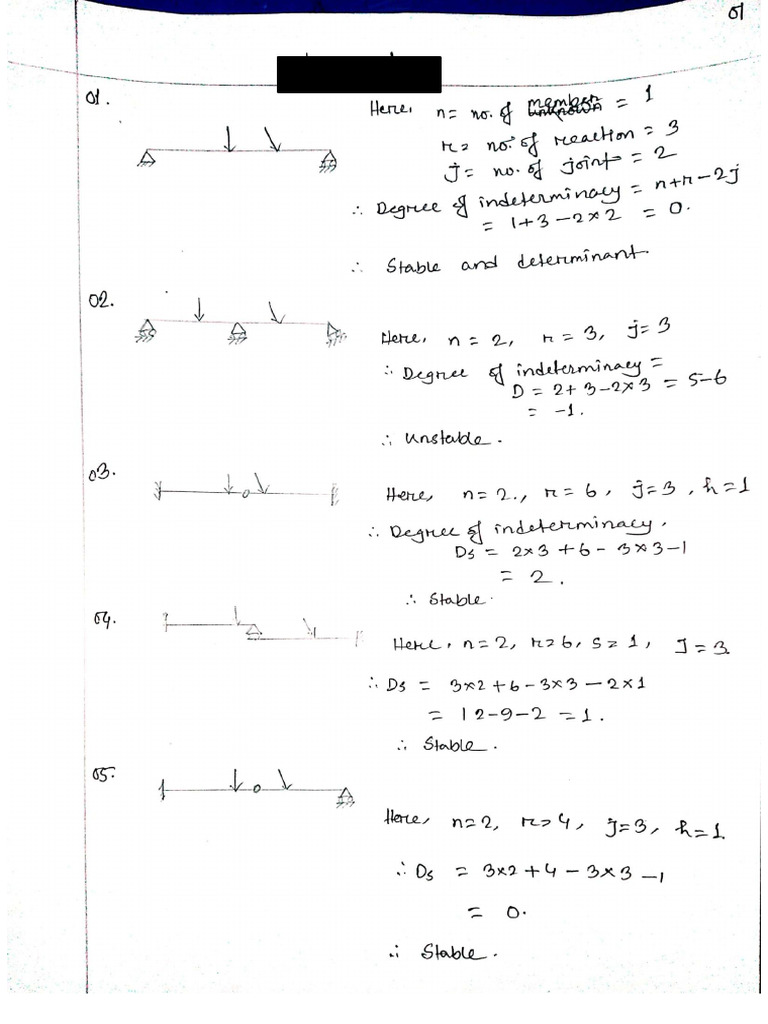 01
01.
Here, n = no. of member unknown = 1
r = no. of reaction = 3
j = no. of joint = 2
∴ Degree of indeterminacy = n+r-2j
= 1+3-2×2 = 0.
∴ Stable and determinant
02.
Here, n = 2, r = 3, j = 3
∴ Degree of indeterminacy =
D = 2+3-2×3 = 5-6
= -1.
∴ Unstable.
03.
Here, n=2., r=6, j=3, h=1
∴ Degree of indeterminacy,
Ds = 2×3+6-3×3-1
= 2.
∴ Stable.
04.
Here, n=2, r=6, s=1, J=3
∴ Ds = 3×2+6-3×3-2×1
= 12-9-2 = 1.
∴ Stable.
05.
Here, n=2, r=4, j=3, h=1
∴ Ds = 3×2+4-3×3-1
= 0.
∴ Stable.